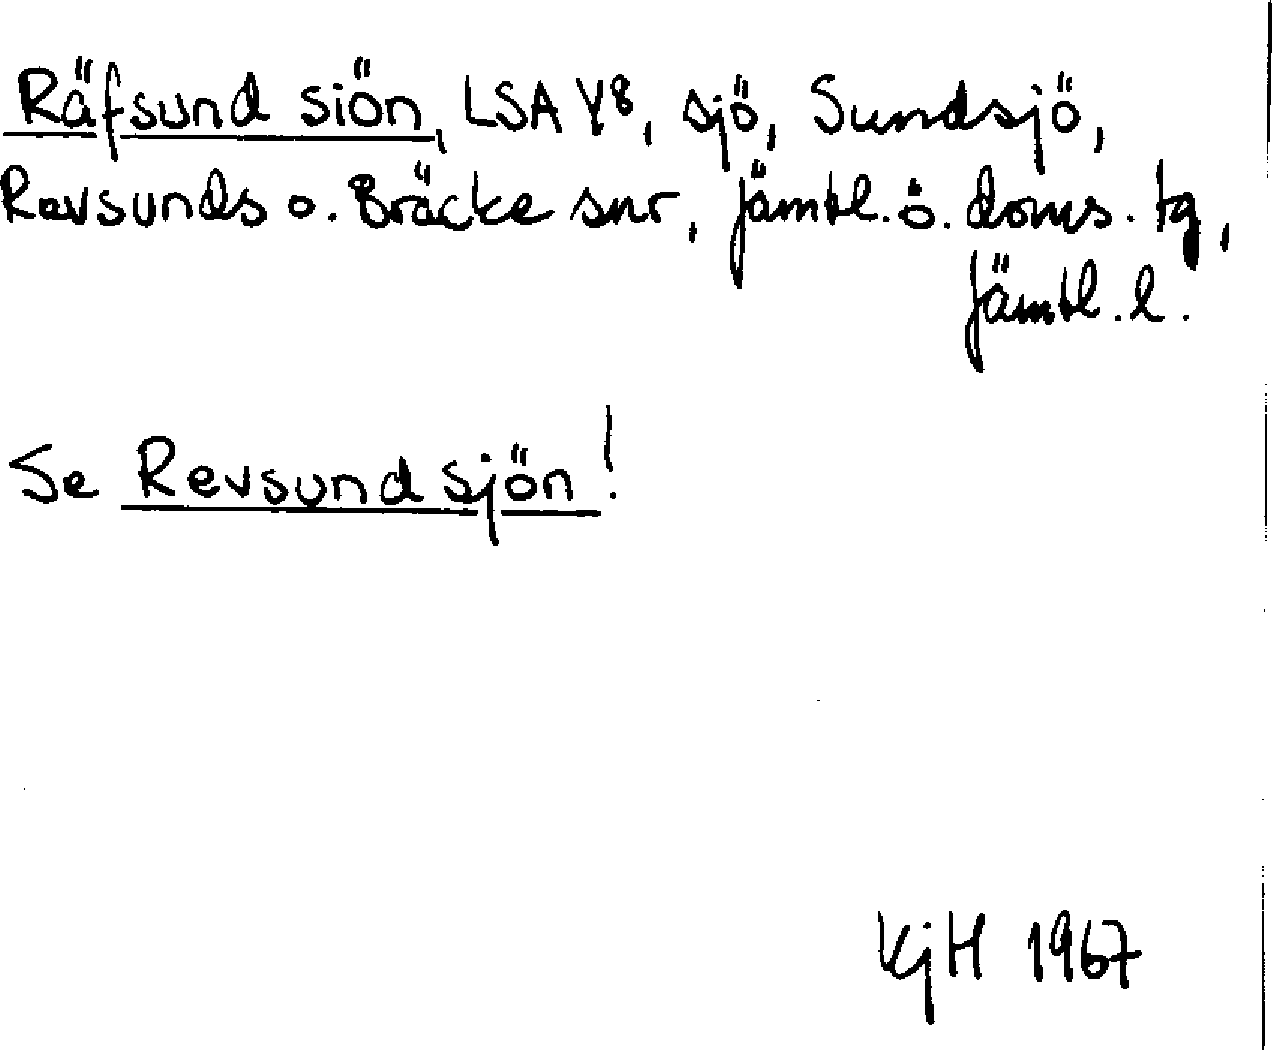 Räfsund siön, LSA Y8, sjö, Sundsjö,
Revsunds o. Bräcke snr, Jämtl. ö. doms. tg,
Jämtl. l.
Se Revsundsjön!
KjH 1967